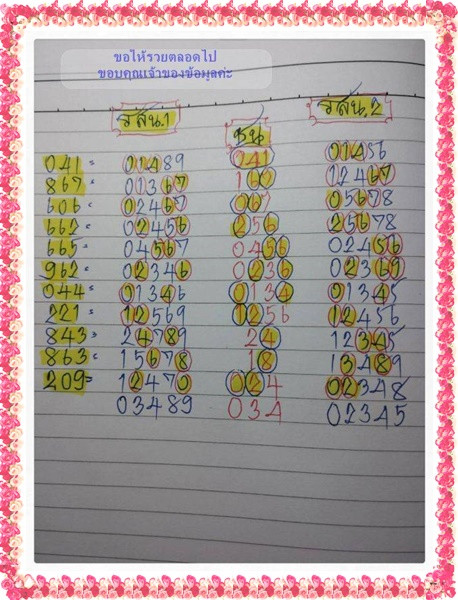 ขอให้รวยตลอดไป
ขอบคุณเจ้าของข้อมูลค่ะ
รสน.1 ชน รสน.2
041= 01489 041 01456
867= 01367 167 12467
606= 02467 067 05678
662= 02456 256 25678
665= 04567 0456 02456
962= 02346 0236 02367
044= 01346 0134 01345
221= 12569 1256 12456
843= 24789 24 12345
863= 15678 18 13489
209= 12470 024 02348
03489 034 02345